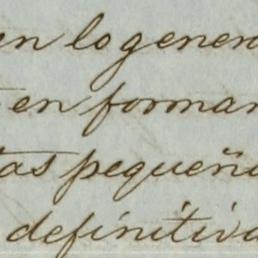 en lo genera
en formar
tas pequeña
definitiva